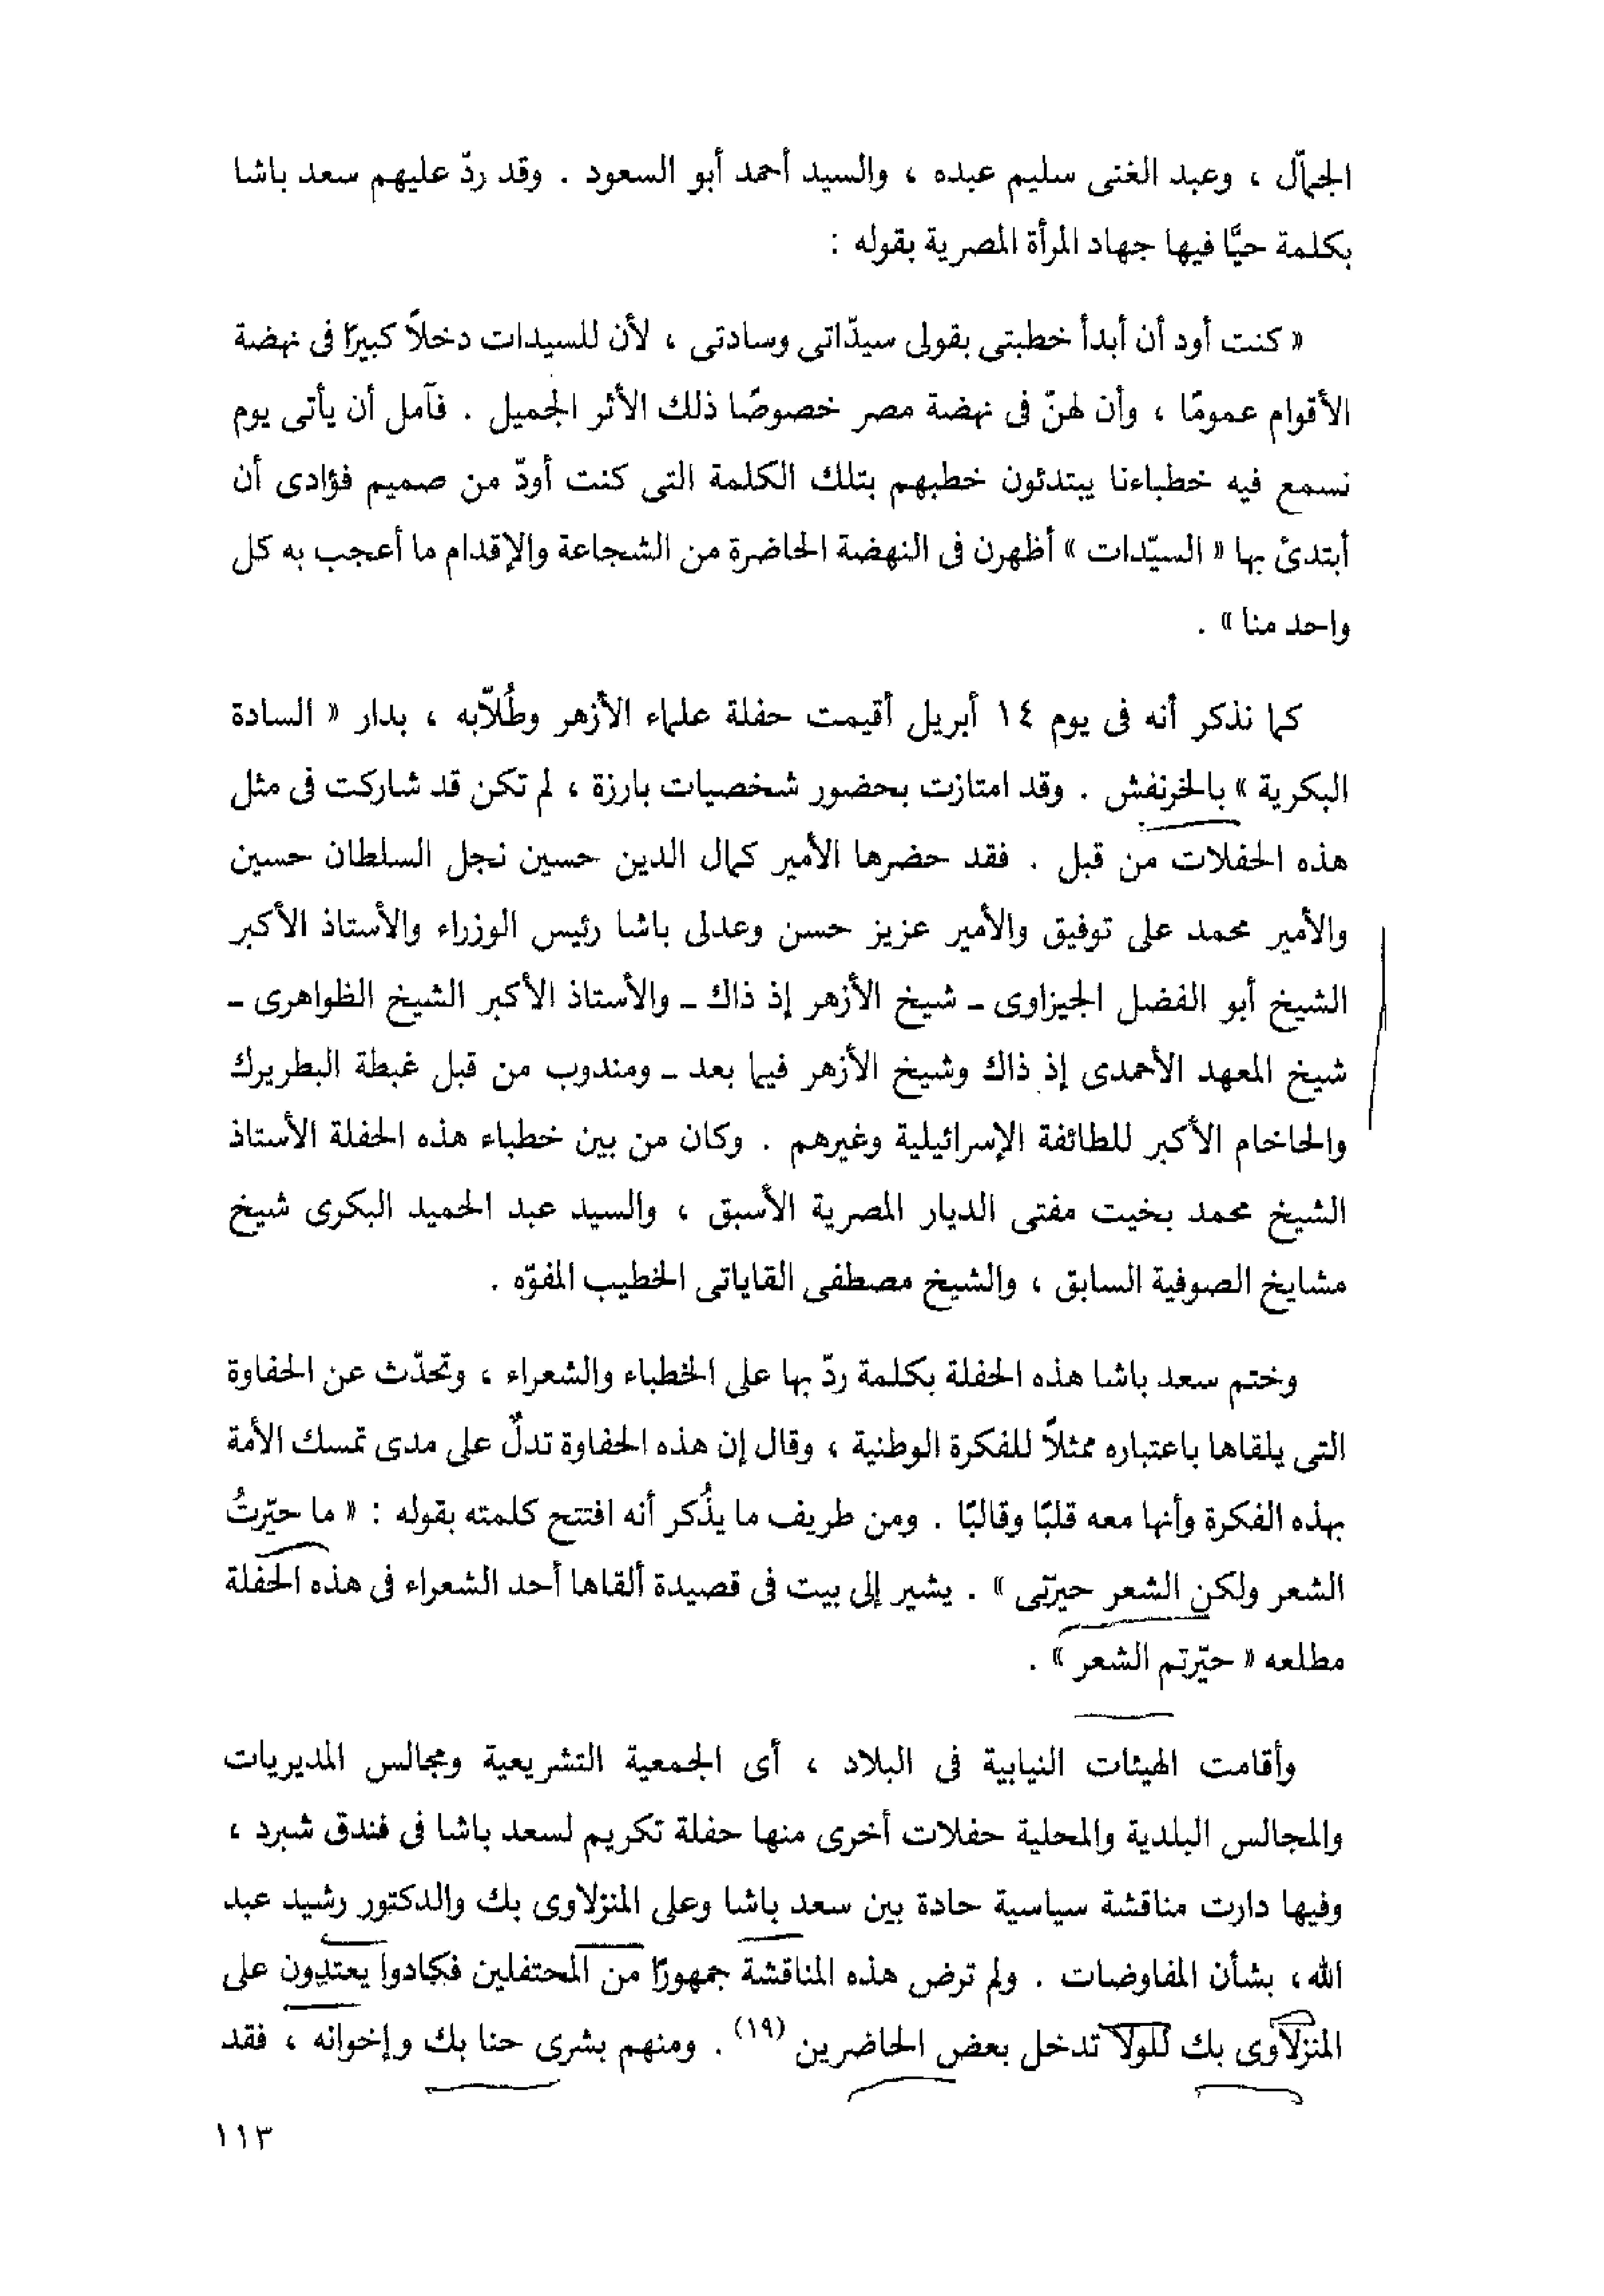 الجمّال ، وعبد الغنى سليم عبده ، والسيد أحمد أبو السعود . وقد ردّ عليهم سعد باشا
بكلمة حيًّا فيها جهاد المرأة المصرية بقوله :
« كنت أود أن أبدأ خطبتى بقولى سيدّاتى وسادتى ، لأن للسيدات دخلاً كبيرًا فى نهضة
الأقوام عمومًا ، وأن لهنّ فى نهضة مصر خصوصًا ذلك الأثر الجميل . فآمل أن يأتى يوم
نسمع فيه خطباءنا يبتدئون خطبهم بتلك الكلمة التى كنت أودّ من صميم فؤادى أن
أبتدئ بها « السيّدات » أظهرن فى النهضة الحاضرة من الشجاعة والإقدام ما أعجب به كل
واحد منا » .
كما نذكر أنه فى يوم ١٤ أبريل أقيمت حفلة علماء الأزهر وطُلّابه ، بدار « السادة
البكرية » بالخرنفش . وقد امتازت بحضور شخصيات بارزة ، لم تكن قد شاركت فى مثل
هذه الحفلات من قبل . فقد حضرها الأمير كمال الدين حسين نجل السلطان حسين
والأمير محمد على توفيق والأمير عزيز حسن وعدلى باشا رئيس الوزراء والأستاذ الأكبر
الشيخ أبو الفضل الجيزاوى ـ شيخ الأزهر إذ ذاك ـ والأستاذ الأكبر الشيخ الظواهرى ـ
شيخ المعهد الأحمدى إذ ذاك وشيخ الأزهر فيما بعد ـ ومندوب من قبل غبطة البطريرك
والحاخام الأكبر للطائفة الإسرائيلية وغيرهم . وكان من بين خطباء هذه الحفلة الأستاذ
الشيخ محمد بخيت مفتى الديار المصرية الأسبق ، والسيد عبد الحميد البكرى شيخ
مشايخ الصوفية السابق ، والشيخ مصطفى القاياتى الخطيب المفوّه .
وختم سعد باشا هذه الحفلة بكلمة ردّ بها على الخطباء والشعراء ، وتحدّث عن الحفاوة
التى يلقاها باعتباره ممثلاً للفكرة الوطنية ، وقال إن هذه الحفاوة تدلّ على مدى تمسك الأمة
بهذه الفكرة وأنها معه قلبًا وقالبًا . ومن طريف ما يذُكر أنه افتتح كلمته بقوله : « ما حيّرتُ
الشعر ولكن الشعر حيرّنى » . يشير إلى بيت فى قصيدة ألقاها أحد الشعراء فى هذه الحفلة
مطلعه « حيّرتم الشعر » .
وأقامت الهيئات النيابية فى البلاد ، أى الجمعية التشريعية ومجالس المديريات
والمجالس البلدية والمحلية حفلات أخرى منها حفلة تكريم لسعد باشا فى فندق شبرد ،
وفيها دارت مناقشة سياسية حادة بين سعد باشا وعلى المنزلاوى بك والدكتور رشيد عبد
الله ، بشأن المفاوضات . ولم ترض هذه المناقشة جمهورًا من المحتفلين فكادوا يعتدون على
المنزلاوى بك للولا تدخل بعض الحاضرين (١٩) . ومنهم بشرى حنا بك وإخوانه ، فقد
١١٣